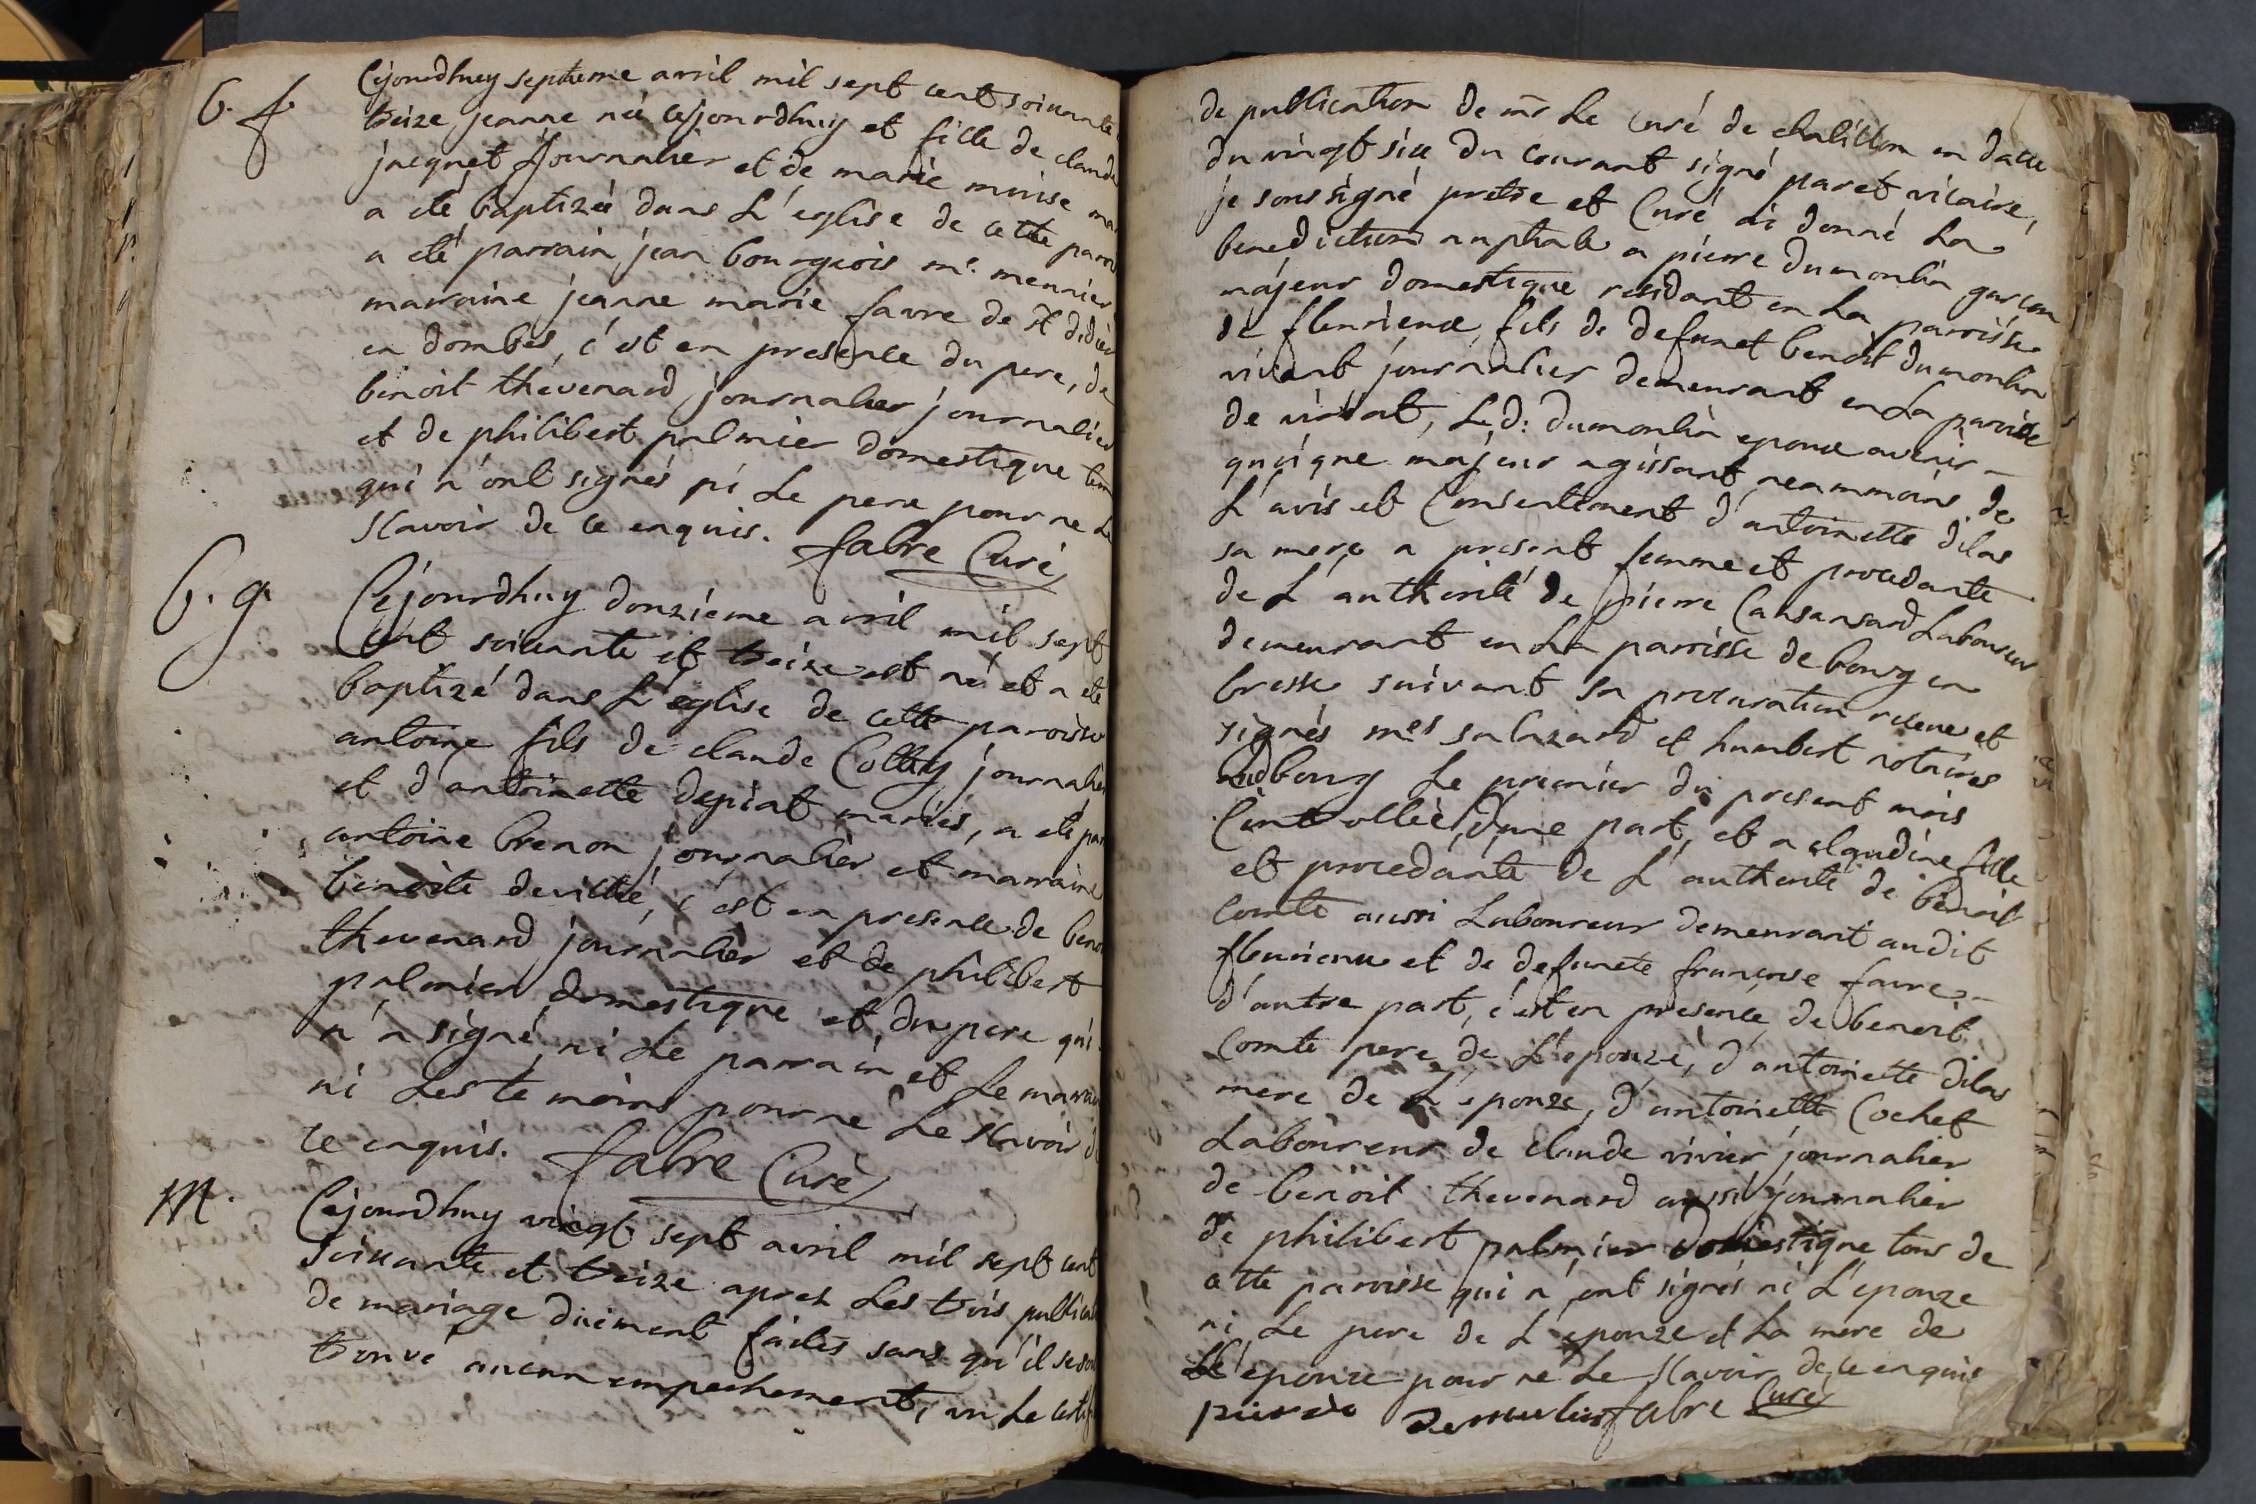 b. f.
Cejourdhuy septieme avril mil sept cent soixante
treize jeanne née cejourdhuy et fille de claude
jacquet journalier et de marie mi
a eté baptizée dans L'eglise de cette paroi
a eté parrain jean bourgeois me. meunier
marraine jeanne marie favre de st didier
en dombes, c'est en presence du pere, de
benoit thevenard journalier journalier
et de philibert palmier domestique tem
qui n'ont signés ni Le pere pour ne Le
scavoir de ce enquis. fabre Curé
b. g.
Cejourdhuy douzieme avril mil sept
cent soixante et treize est né et a eté
baptizé dans L'eglise de cette paroisse
antoine fils de claude Collety journalier
et d'antoinette depiat mariés, a eté par
antoine brenon journalier et marraine
benoite deville, c'est en presence de beno
thevenard journalier et de philibert
palmier domestique et du pere qui
n'a signé ni Le parrain et Le marrai
ni Les temoins pour ne Le scavoir de
ce enquis. fabre Curé
M.
Cejourdhuy vingt sept avril mil sept cent
soixante et treize apres Les trois publicat
de mariage duement faites sans qu'il se soit
trouvé aucun empechement, vu Le certif
de publication de mr Le curé de chatillon en datte
du vingt six du courant signé paret vicaire,
je soussigné pretre et Curé ai donné La
benediction nuptiale a pierre dumoulin garcon
majeur domestique residant en La paroisse
de fleurieux, fils de defunct benoit dumoulin
vivant journalier demeurant en La paroisse
de viriat, Led: dumoulin epoux avenir
quoique majeur agissant neammoins de
L'avis et Consentement d'antoinette dilas
sa mere a present femme et procedante
de L'authorité de pierre Laboureur
demeurant en La paroisse de bourg en
bresse suivant sa procuration receue et
signés mes salazard et humbert notaires
aud bourg Le premier du present mois
Controllée, d'une part, et a claudine fille
et procedante de L'authorité de benoit
Comte aussi Laboureur demeurant audit
fleurieux et de defuncte francoise favre
d'autre part, c'est en presence de benoit
Comte pere de L'epouze, d'antoinette dilas
mere de L'epouze, d'antoinette Cochet
Laboureur de claude vivier journalier
de benoit thevenard aussi journalier
de philibert palmier domestique tous de
cette paroisse qui n'ont signés ni L'epouze
ni Le pere de L'epouze et La mere de
L'epouze pour ne Le scavoir de ce enquis
pierre demoulin fabre Curé